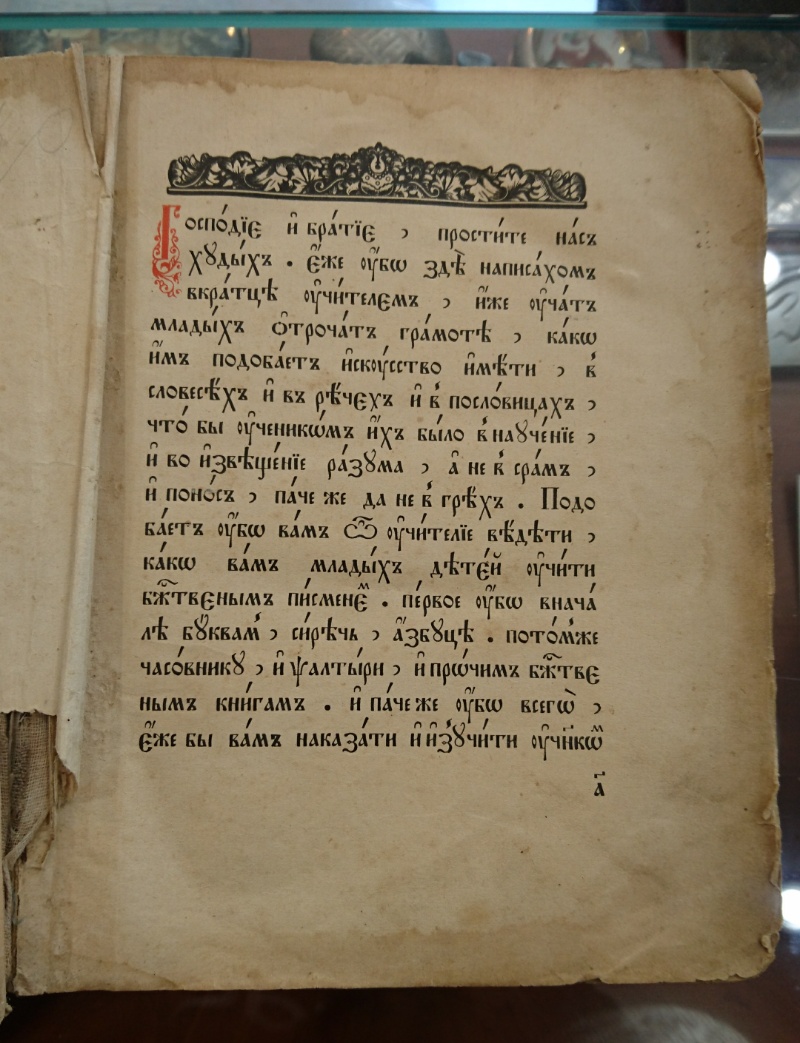 Госпо́дїе и҆ бра́тїе , прости́те на́съ
хꙋды́хъ . є҆́же ᲂу҆́бѡ здѣ̀ написа́хомъ
вкра́тцѣ ᲂу҆чи́телемъ , и҆̀же ᲂу҆ча́тъ
млады́хъ ѻ҆троча́тъ гра́мотѣ , ка́кѡ
и҆̀мъ подоба́етъ и҆скᲂу́сство и҆мѣ́ти , в̾
словесѣ́хъ и҆ въ рѣ́чехъ и҆ в̾ посло́вицахъ ,
что́ бы ᲂу҆ченикѡ́мъ и҆́хъ бы́ло в̾ наꙋче́нїе ,
и҆ во и҆звѣще́нїе ра́зꙋма , а҆ не в̾ сра́мъ ,
и҆ поно́съ , па́че же да не в̾ грѣ́хъ . Подо
ба́етъ ᲂу҆́бѡ ва́мъ ѽ ᲂу҆чи́телїе вѣ́дѣти ,
ка́кѡ ва́мъ млады́хъ дѣте́й ᲂу҆чи́ти
бж҃твеннымъ пи́сменеⷨ . пе́рвое ᲂу҆́бѡ внача́
лѣ бꙋ́квам̾ , си́рѣчь , а҆́збꙋцѣ . пото́м̾же
часо́вникꙋ , и҆ ѱалты́ри , и҆ прѡ́чимъ бж҃тве
нымъ кни́гамъ . и҆ па́че же ᲂу҆́бѡ всегѡ̀ ,
є҆́же бы ва́мъ наказа́ти и҆ и҆зꙋчи́ти ᲂу҆чн҃кѡⷨ
а҃